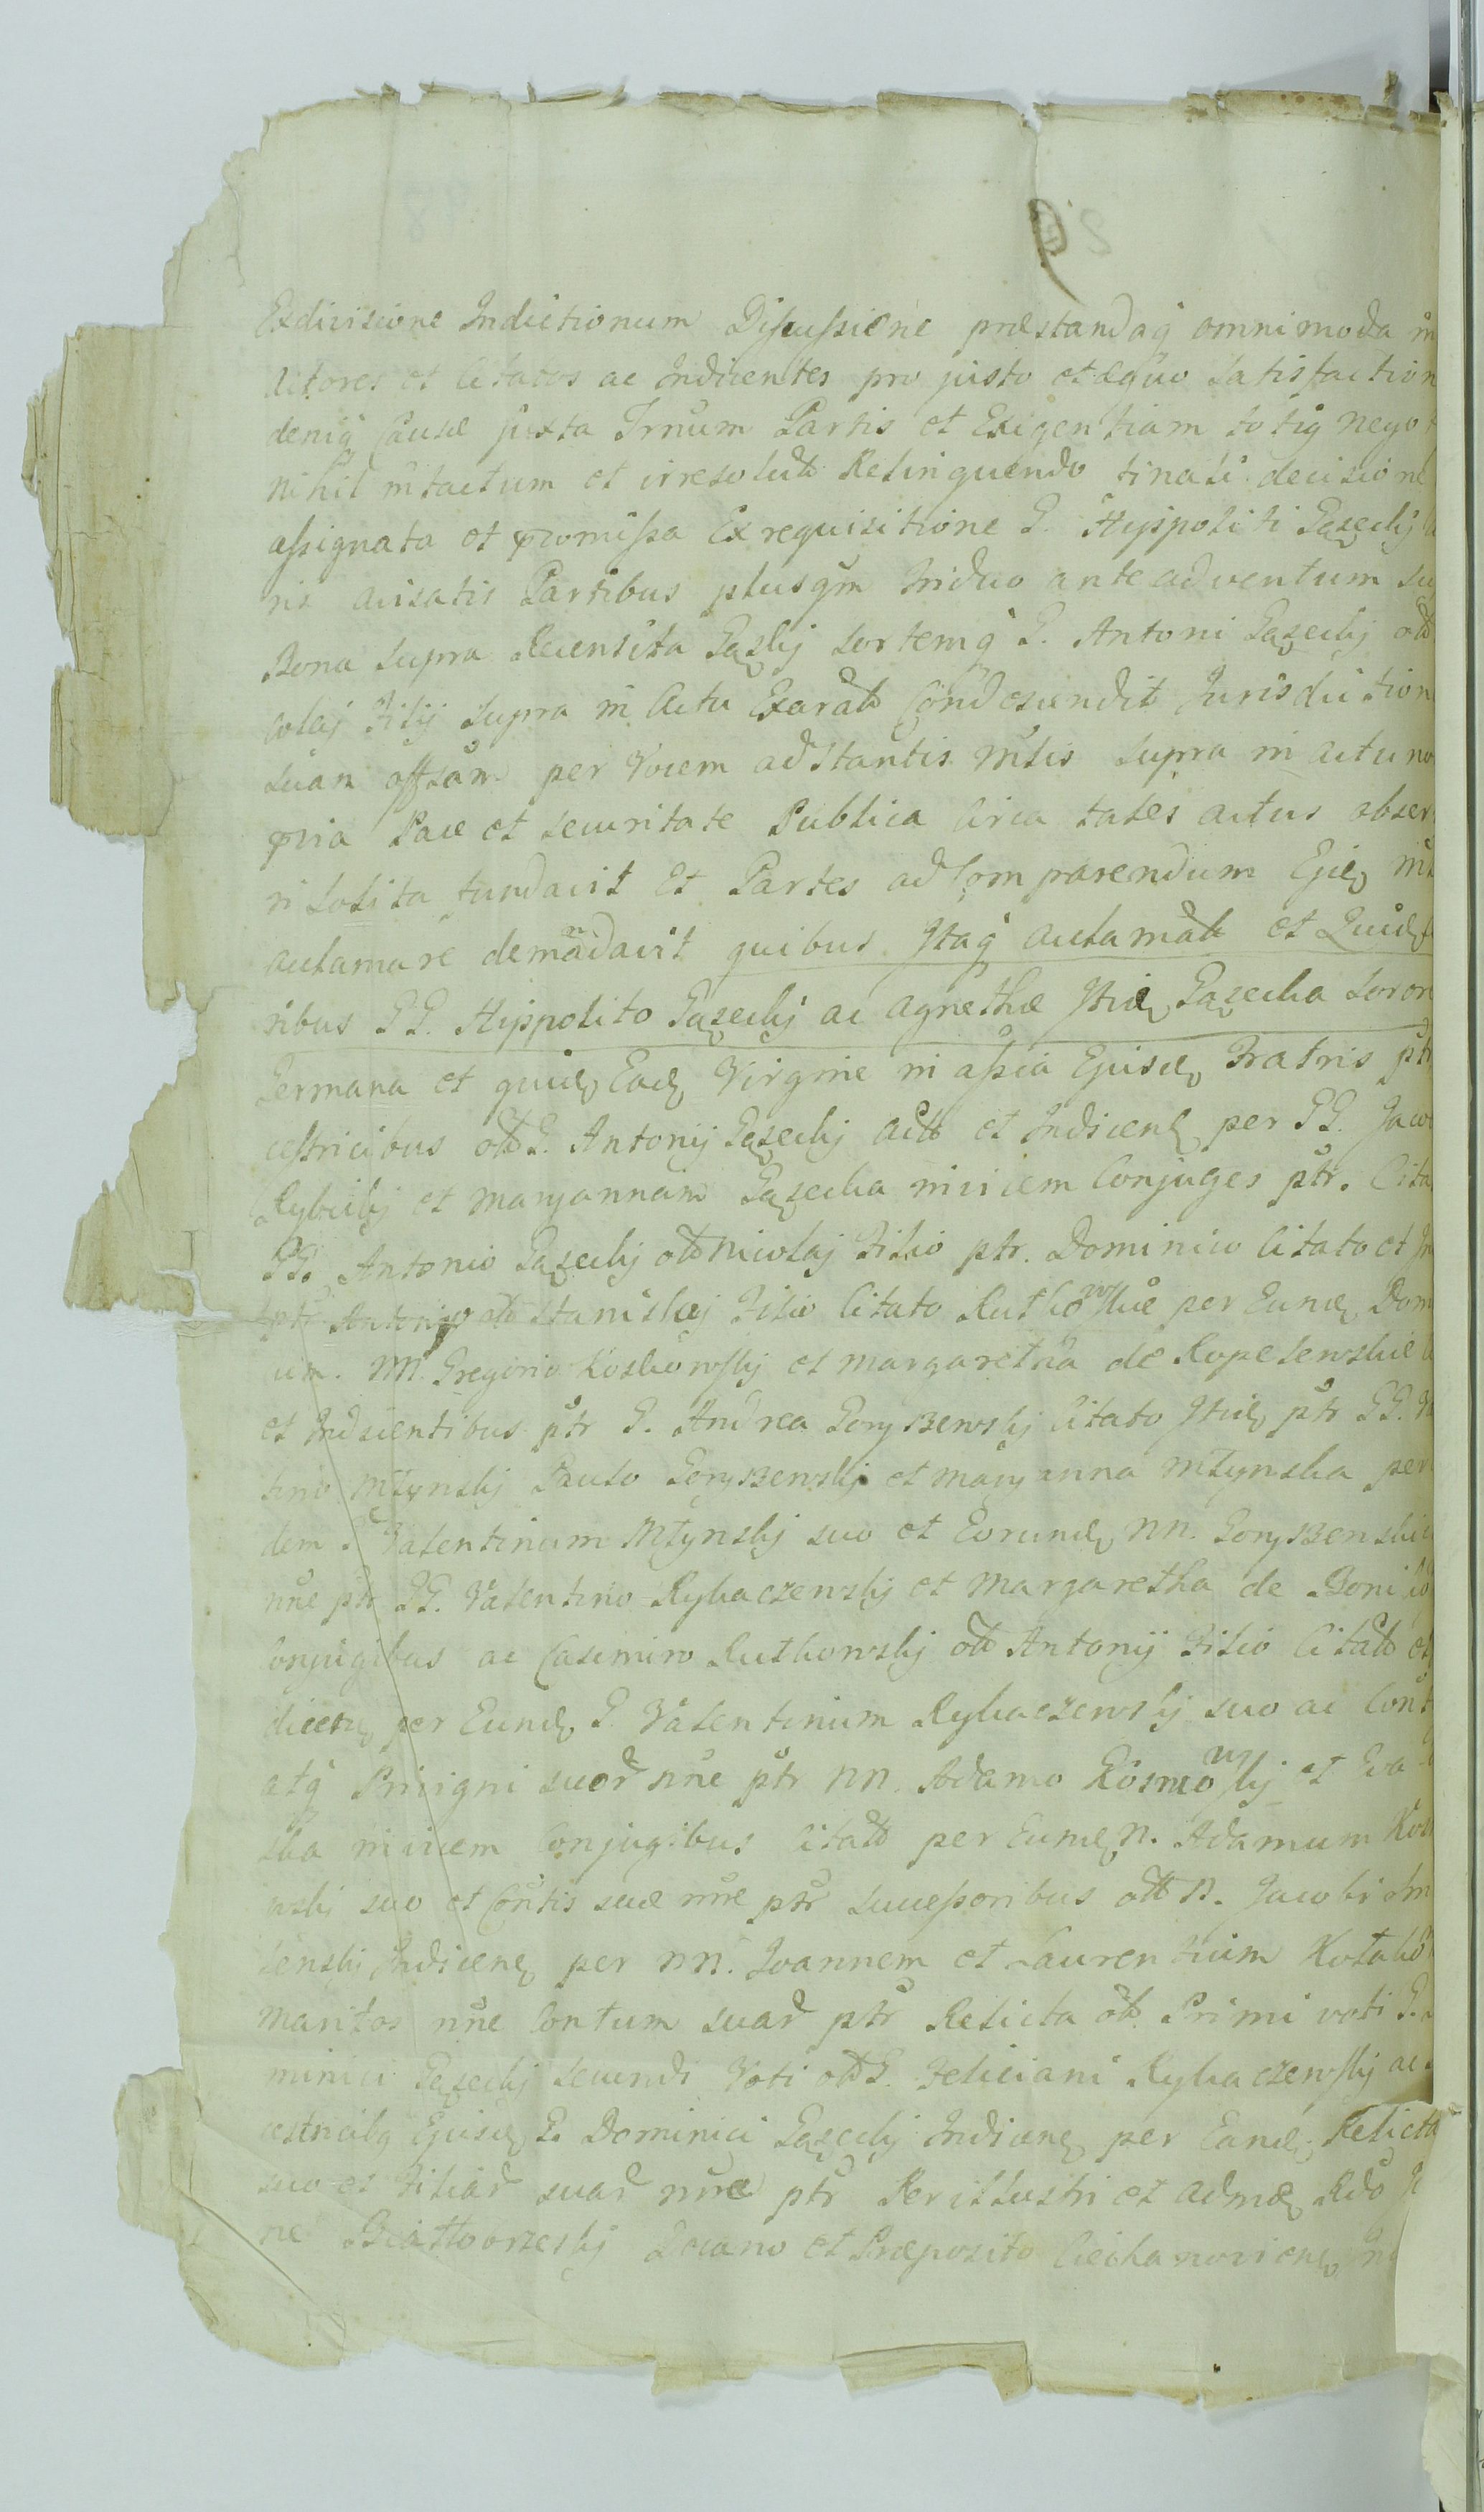 Exdivisione Indictionum Discussione præstandaq omnimoda in
Actores et Citatos ac Indicentes pro justo et æquo Satisfaction
deniq Causæ juxta Trnum Partis et Exigentiam totig nego
nihil intactum et irresolutt Relinquendo finali decisione
assignata et promissa Ex requisitione G. Hyppoliti Gązecky
ris avisatis Partibus plusqm triduo ante adventum su
Bona Supra Recensita Gązky Sortemq G. Antoni Gązecky ott
colaj Filij Supra in Actu Exaratt Condescendit Jurisdiction
Suam offsam per Vocem adstantis Mlis Supra in actu no
pvia Pace et securitate Publica Circa tales actus obser
ri Solita fundavit Et Partes ad Comparendum Ejed
aclamare demandavit quibus Itaq aclamatt et Quidę
ribus GG. Hippolito Gązecky ac Agnethæ Itidę Gązecka Soror
Germana et quidę Eadę Virgine in assia Ejusdę Fratris ptr
cessricibus ott G. Antonij Gązecky Actt et Indicenę per GG. Jaco
Rybicky et Maryannam Gązecka invicem Conjuges ptr. Cita
GG. Antonio Gązecky ott Nicolaj Filio ptr. Dominico Citato et In
ptr Antonio ott Stanislaj Filio Citato Rutkowskie per Eundę Dom
um. NN. Gregorio Koskowsky et Margaretha de Ropelewskie
et Indicentibus ptr G. Andrea Goryszewsky Citato Itidę ptr GG.
tino Młynsky Paulo Goryszewsky et Maryanna Młynska per
dem G. Valentinum Młynsky suo et Eorundę NN. Goryszewskie
nne ptr GG. Valentino Rykaczewsky et Margaretha de Boni
Conjugibus ac Casimiro Rutkowsky ott Antonij Filio Citatt et
dicenę per Eundę G. Valentinum Rykaczewsky suo ac Cont
atq Privigni suor nne ptr NN. Adamo Kosmowsky et Eva
ska invicem Conjugibus Citatt per Eundę N. Adamum Kos
wsky suo et Contis suæ nne ptr Successoribus ott N. Jacobi
lensky Indicenę per NN. Joannem et Laurentium Kołako
Maritos nne Contum suar ptr Relicta ott Primi voti G.
minici Gązecky Secundi Voti ott G. Feliciani Rykaczewsky ac
cestricibq Ejusdę G. Dominici Gązecky Indicenę per Eandę Relicta
suo et Filiar suar nne ptr Perillustri et Admdę Rdo
ne Białobrzesky Decano et Præposito Ciechanoviensę